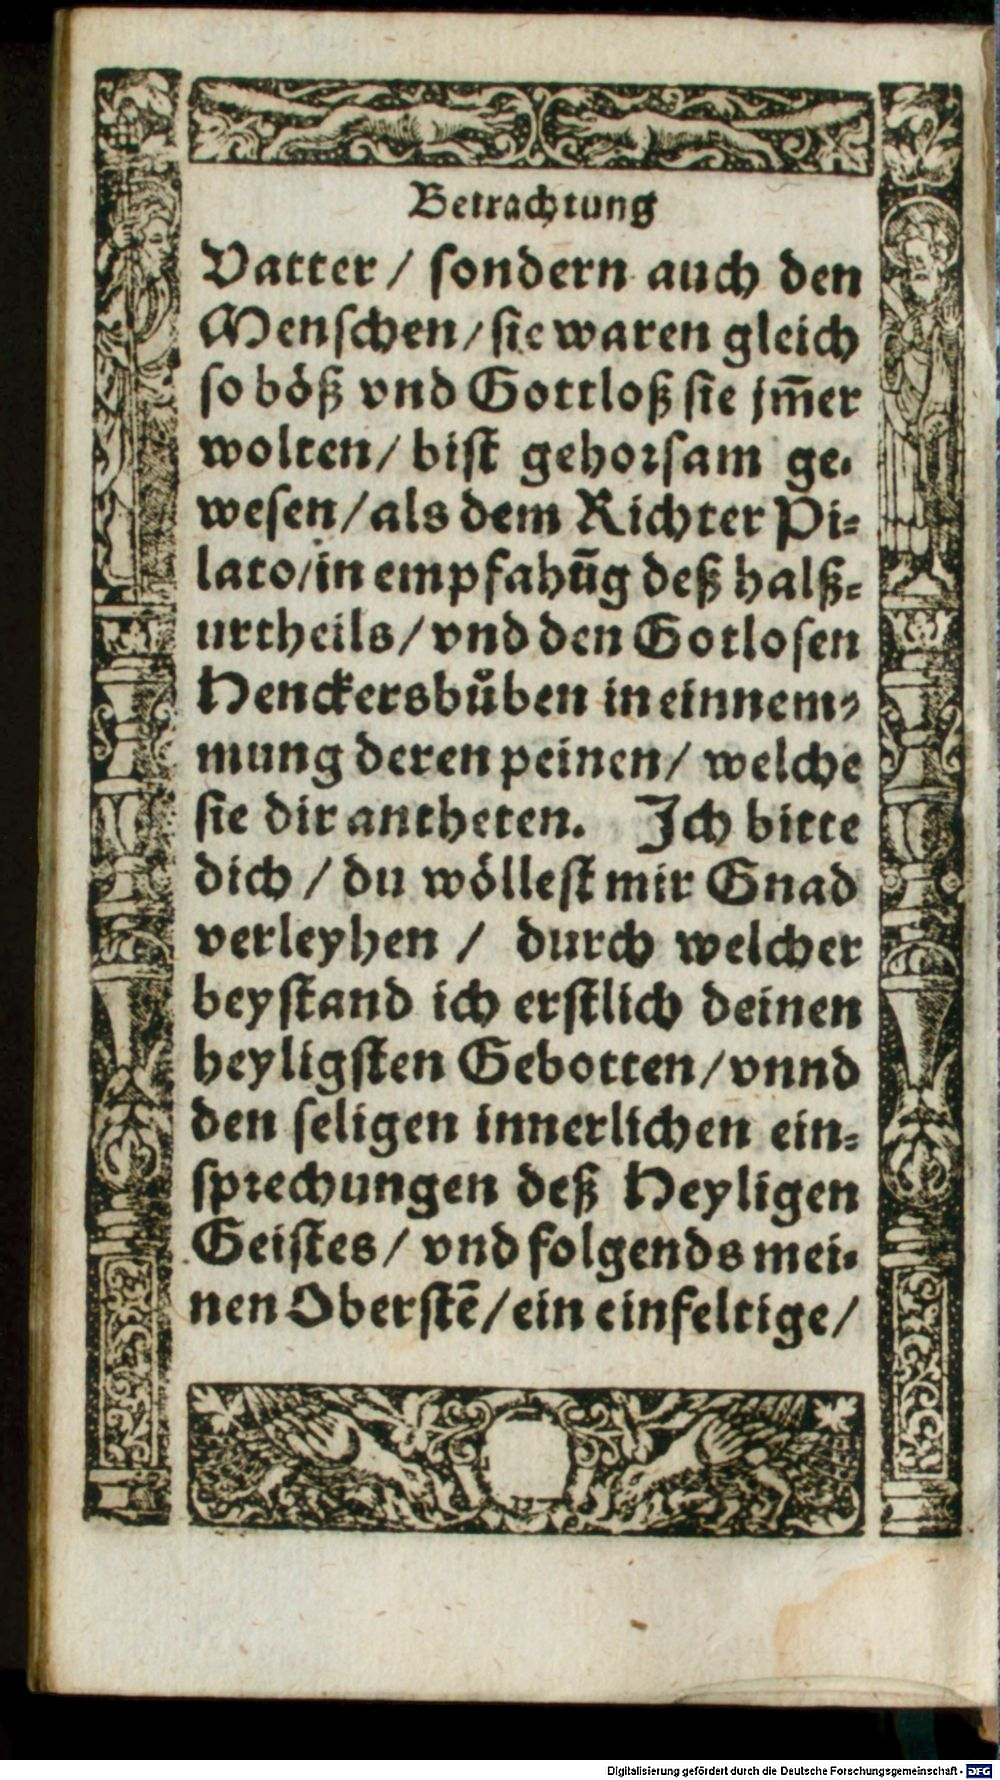 Betrachtung
Vatter / sondern auch den
Menschen / sie waren gleich
so böß vnd Gottloß sie jm̃er
wolten / bist gehorsam ge-
wesen / als dem Richter Pi-
lato / in empfahũg deß halß-
urtheils / vnd den Gotlosen
Henckersbůben in einnem-
mung deren peinen / welche
sie dir antheten. Ich bitte
dich / du wöllest mir Gnad
verleyhen / durch welcher
beystand ich erstlich deinen
heyligsten Gebotten / vnnd
den seligen innerlichen ein-
sprechungen deß Heyligen
Geistes / vnd folgends mei-
nen Oberstẽ / ein einfeltige /
Digitalisierung gefördert durch die Deutsche Forschungsgemeinschaft - DFG